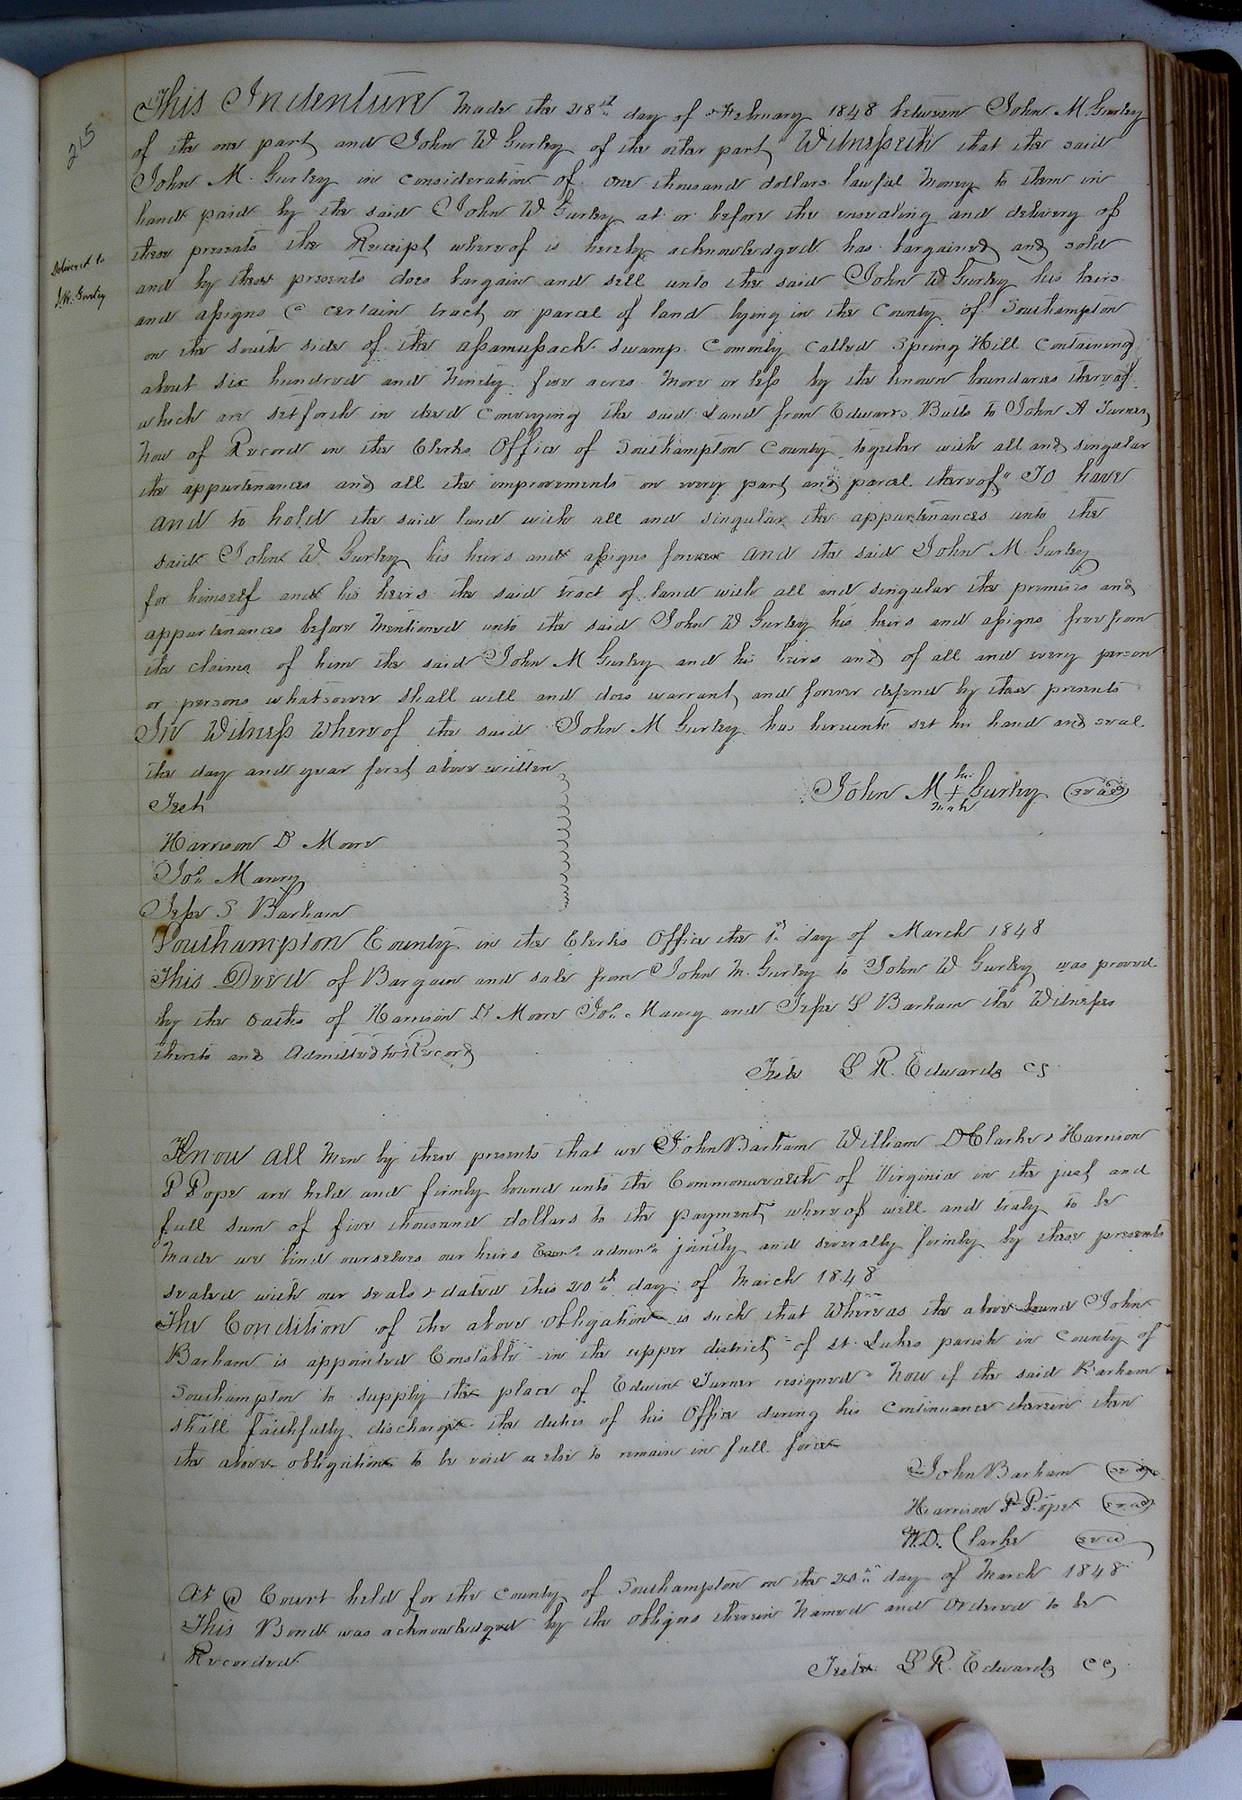 215
Delivered to
J.W. Gurley
This Indenture Made the 28st day of February 1848 between John M. Gurley
of the one part and John W Gurley of the other part Witnesseth that the said
John M. Gurley in consideration of one thousand dollars lawful money to them in
hand paid by the said John W Gurley at or before the ensealing and delivery of
these presents the Receipt whereof is hereby acknowledged has bargained and sold
and by these presents does bargain and sell unto the said John W Gurley his heirs
and assigns a certain tract or parcel of land lying in the County of Southampton
on the South side of the assamussack swamp Comonly called Spring Hill Containing
about six hundred and Ninety five acres More or less by the known boundaries thereof
which are setforth in deed Conveying the said Land from Edwards Butts to John A Turner
Now of Record in the Clerks Office of Southampton County together with all and singular
the appurtenances and all the improvements on every part and parcel thereof" To have
and to hold the said land with all and singular the appurtenances unto the
said John W. Gurley his heirs and assigns forever and the said John M Gurley
for himself and his heirs the said tract of land with all and singular the premises and
appurtenances before Mentioned unto the said John W Gurley his heirs and assigns free from
the claims of him the said John M Gurley and his heirs and of all and every person
or persons whatsoever shall will and does warrant and forever defend by these presents
In Witness Whereof the said John M Gurley has hereunto set his hand and seal
the day and year first above written
John M his + mark Gurley (seal)
Test
Harrison D Moore
Jos. Maury
Jesse S Barham
Southampton County in the Clerks Office the 1st day of March 1848
This Deed of Bargain and sale from John M. Gurley to John W Gurley was proved
by the oaths of Harrison D Moore Jos. Maury and Jesse S Barham the Witnesses
thereto and Admitted to Record
Teste L R. Edwards CS
Know all Men by these presents that we John Barham William D Clarke & Harrison
P Pope are held and firmly bound unto the Commonwealth of Virginia in the just and
full sum of five thousand dollars to the payment whereof well and truly to be
Made we bind ourselves our heirs Exors. admors. jointly and severally firmly by these presents
sealed with our seals & dated this 20th day of March 1848
The Condition of the above obligation is such that Whereas the above bound John
Barham is appointed Constable in the upper district of St. Lukes parish in County of
Southampton to supply the place of Edwin Turner resigned Now if the said Barham
shall faithfully discharge the duties of his Office during his Continuance therein then
the above obligation to be void or else to remain in full force
John Barham (seal)
Harrison P Pope (seal)
W.D. Clarke (seal)
At a Court held for the County of Southampton on the 20th day of March 1848
This Bond was acknowledged by the obligors therein Named and Ordered to be
Recorded.
Teste L R. Edwards CC